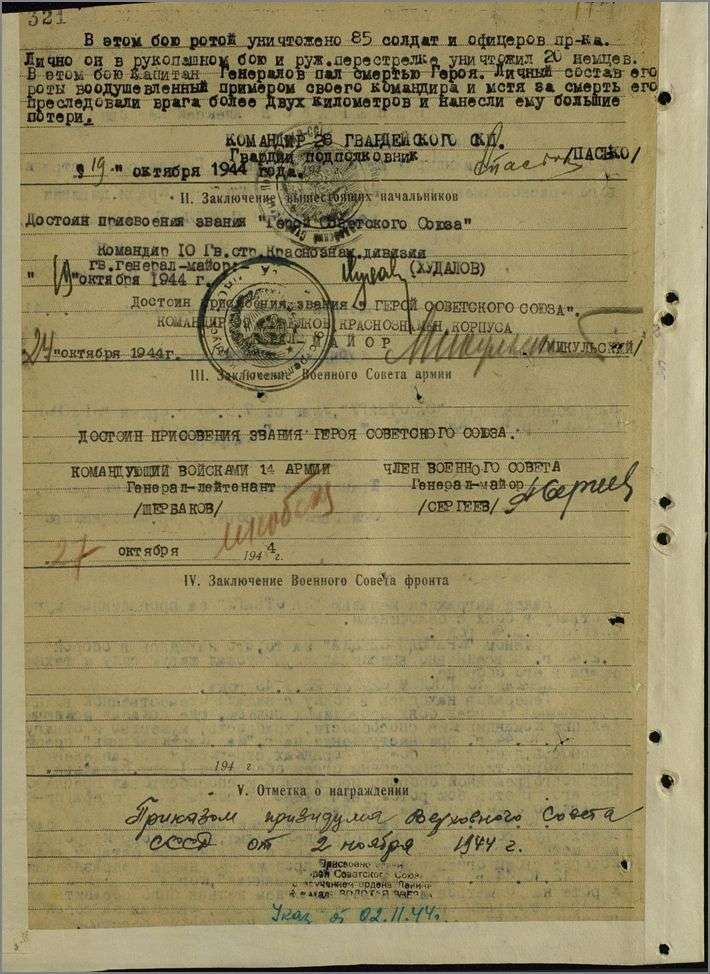 321
В этом бою ротой уничтожено 85 солдат и офицеров пр-ка.
Лично он в рукопашном бою и руж.перестрелке уничтожил 20 немцев.
В этом бою Капитан Генералов пал смертью Героя. Личный состав его
роты воодушевленный примером своего командира и мстя за смерть его
преследовали врага более двух километров и нанесли ему большие
потери.
КОМАНДИР 28 ГВАРДЕЙСКОГО СП.
Гвардии подполковник /ПАСЬКО/
"19" октября 1944 года.
II. Заключение вышестоящих начальников
Достоин присвоения звания "Герой Советского Союза"
Командир 10 Гв.стр.Краснознам.дивизия
гв.генерал-майор- (ХУДАЛОВ)
"19"октября 1944 г.
Достоин присвоения звания " ГЕРОЙ СОВЕТСКОГО СОЮЗА".
КОМАНДИР КРАСНОЗНАМЕН КОРПУСА
МАЙОР МИКУЛЬСКИЙ/
24"октября 1944г.
III. Заключение Военного Совета армии
ДОСТОИН ПРИСОВЕНИЯ ЗВАНИЯ ГЕРОЯ СОВЕТСКОГО СОЮЗА.
КОМАНДУЮЩИЙ ВОЙСКАМИ 14 АРМИИ ЧЛЕН ВОЕННОГО СОВЕТА
Генерал-лейтенант Генерал-майор
/ЩЕРБАКОВ/ /СЕРГЕЕВ/
27 октября 1944 г.
IV. Заключение Военного Совета фронта
" 194 г
V. Отметка о награждении
Приказом призидума Верховного Совета
СССР от 2 ноября 1944 г.
Присвоено
рой Советского Союз
с вручением ордена Ленин
ЗОЛОТАЯ ЗВЕЗДА
Указ от 02.11.44г.